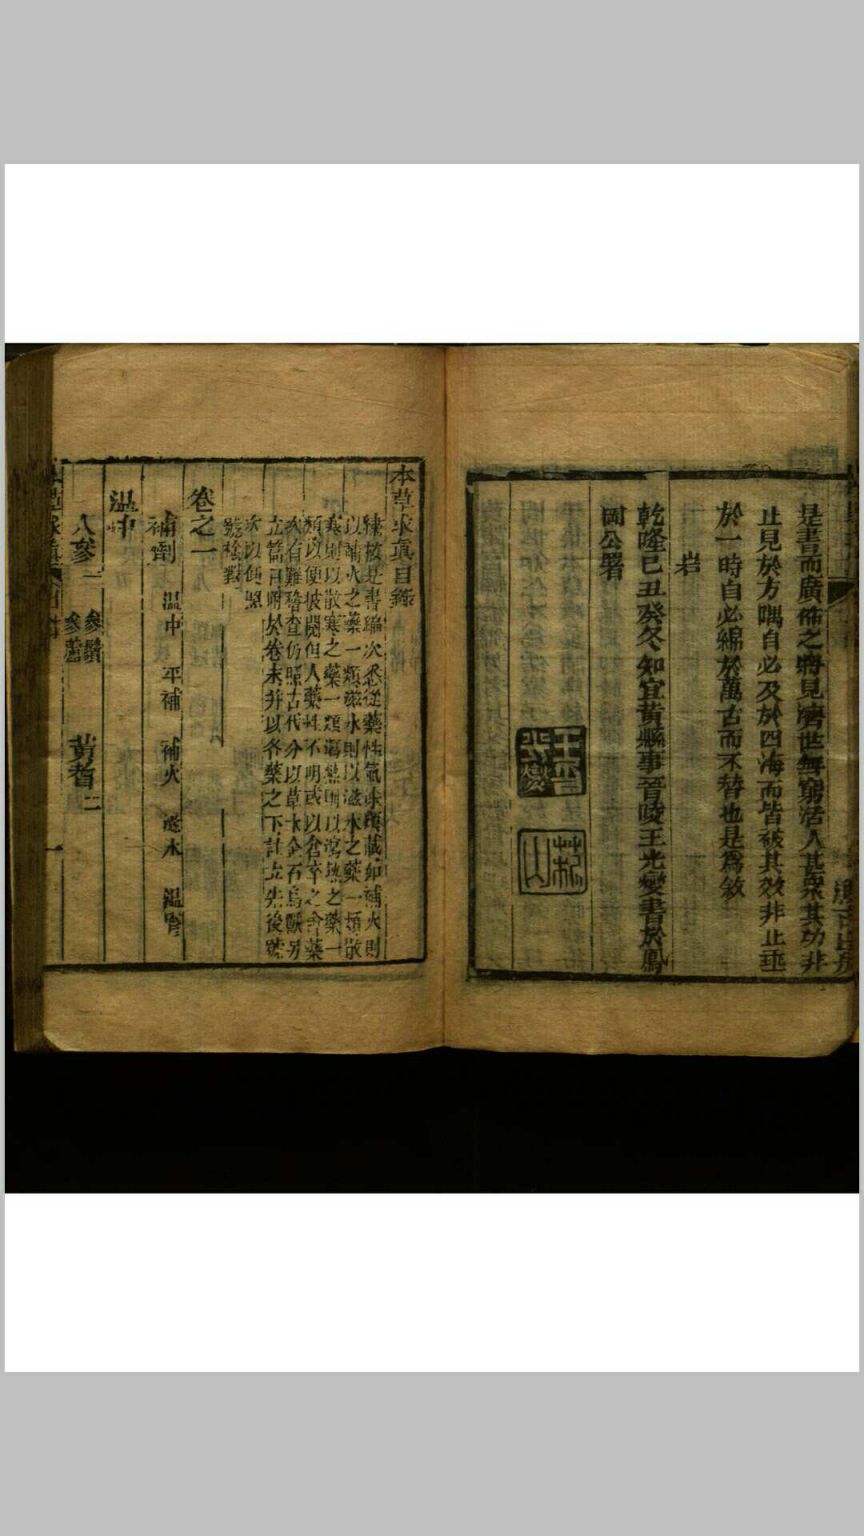 是書而廣佈之將見濟世無窮活人甚衆其功非
止見於方隅自必及於四海而皆被其效非止垂
於一時自必綿於萬古而不替也是爲敘
岩
乾隆己丑癸冬知宜黃縣事晉陵王光燮書於鳳
岡公署
本草求真目錄
是書編次悉從藥性氣味類載如補火則
以補火之藥一類滋水則以滋水之藥一類散
寒則以散寒之藥一類瀉熱則以瀉熱之藥一
類以便披閱但人藥性不明或以倉卒之會藥
次有難稽查仍照古代分以草木金石鳥獸另
立篇目附於卷末并以各藥之下計立先後號
次以便照
號檢對
卷之一
補劑 温中 平補 補火 滋水 温腎
温中
人參一 參鬚 參蘆 黃耆二